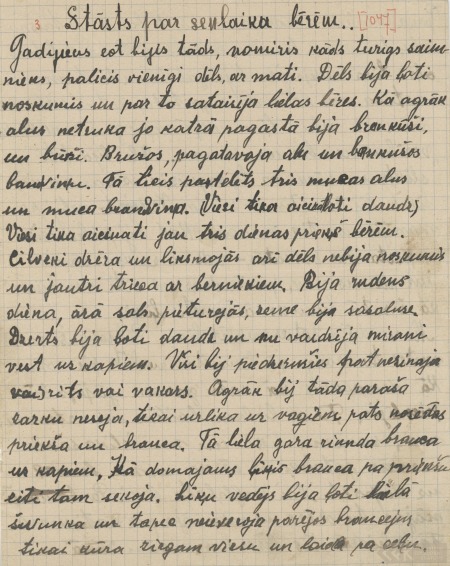 3 Stāsts par senlaika bērēm.. [1047]
Gadījiens eot bijis tāds, nomiris kāds turīgs saim-
nieks, palicis vienīgi dēls, ar māti. Dēls bija ļoti
noskumis un par to sataisīja lielas bēres. Kā agrāk
alus netruka jo katrā pagastā bija brankūši,
un būži. Bružos, pagatavoja alu un brankūžos
bandvinu. Tā ticis pastelēts tris mucas alus
un muca brandvina. Viesi tika aicināti daudz
Viesi tika aicināti jau tris dienas priekš bērēm.
Cilveki dzēra un liksmojās arī dēls nebija noskumis
un jautri trieca ar berniekiem. Bija rudens
diena, ārā sals pieturejās, zeme bija sasaluse.
Dzerts bija ļoti daudz un nu vaidzēja mironi
vest uz kapiem. Visi bij piedzerušies pat nezinaja
vai rits vai vakars. Agrāk bij tāda paraša
zarku neseja, tikai uzlika uz vagiem pats
priekša un brauca. Tā liela gara rinda brauca
uz kapiem, Kā domajams līķis brauca pa priekšu
citi tam sekoja. Liķu vedejs bija ļoti lielā
švunka un tapec neievēroja parējos braucejus
tikai kūra zirgam virsu un laida pa ceļu.